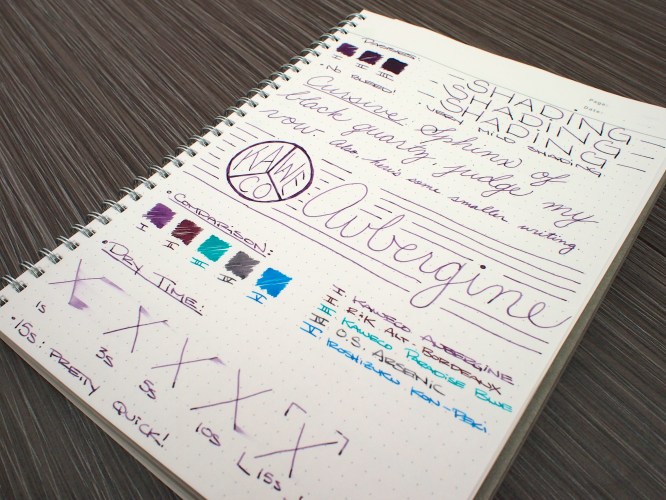 PASSES:
I II III
• NO BLEED!
Page:
Date:
SHADING
SHADING
SHADING
• VERY MILD SHADING
Cursive: Sphinx of
black quartz, judge my
vow. Also, here's some smaller writing.
KA WE CO
Aubergine
• COMPARISON:
I II III IV V
I KAWECO AUBERGINE
II R&K ALT. BORDEAUX
III KAWECO PARADISE BLUE
IV O.S. ARSENIC
V IROSHIZUKU KON-PEKI
• DRY TIME:
1s 3s 5s 10s 15s
• 15s: PRETTY
QUICK!